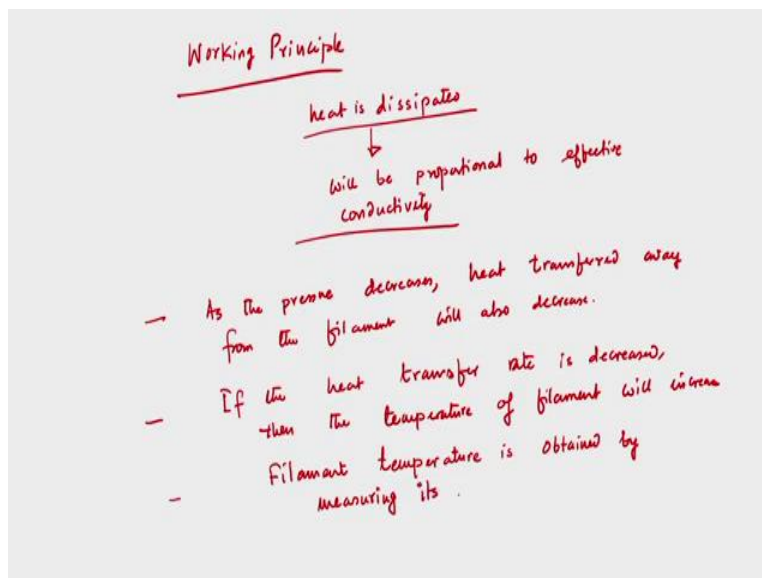 Working Principle
heat is dissipates
will be propational to effective
conductivety
As the pressure decreases, heat transferred away
from the filament will also decrease.
If the heat transfer rate is decreased,
then the temperature of filament will increase
Filament temperature is obtained by
measuring its.